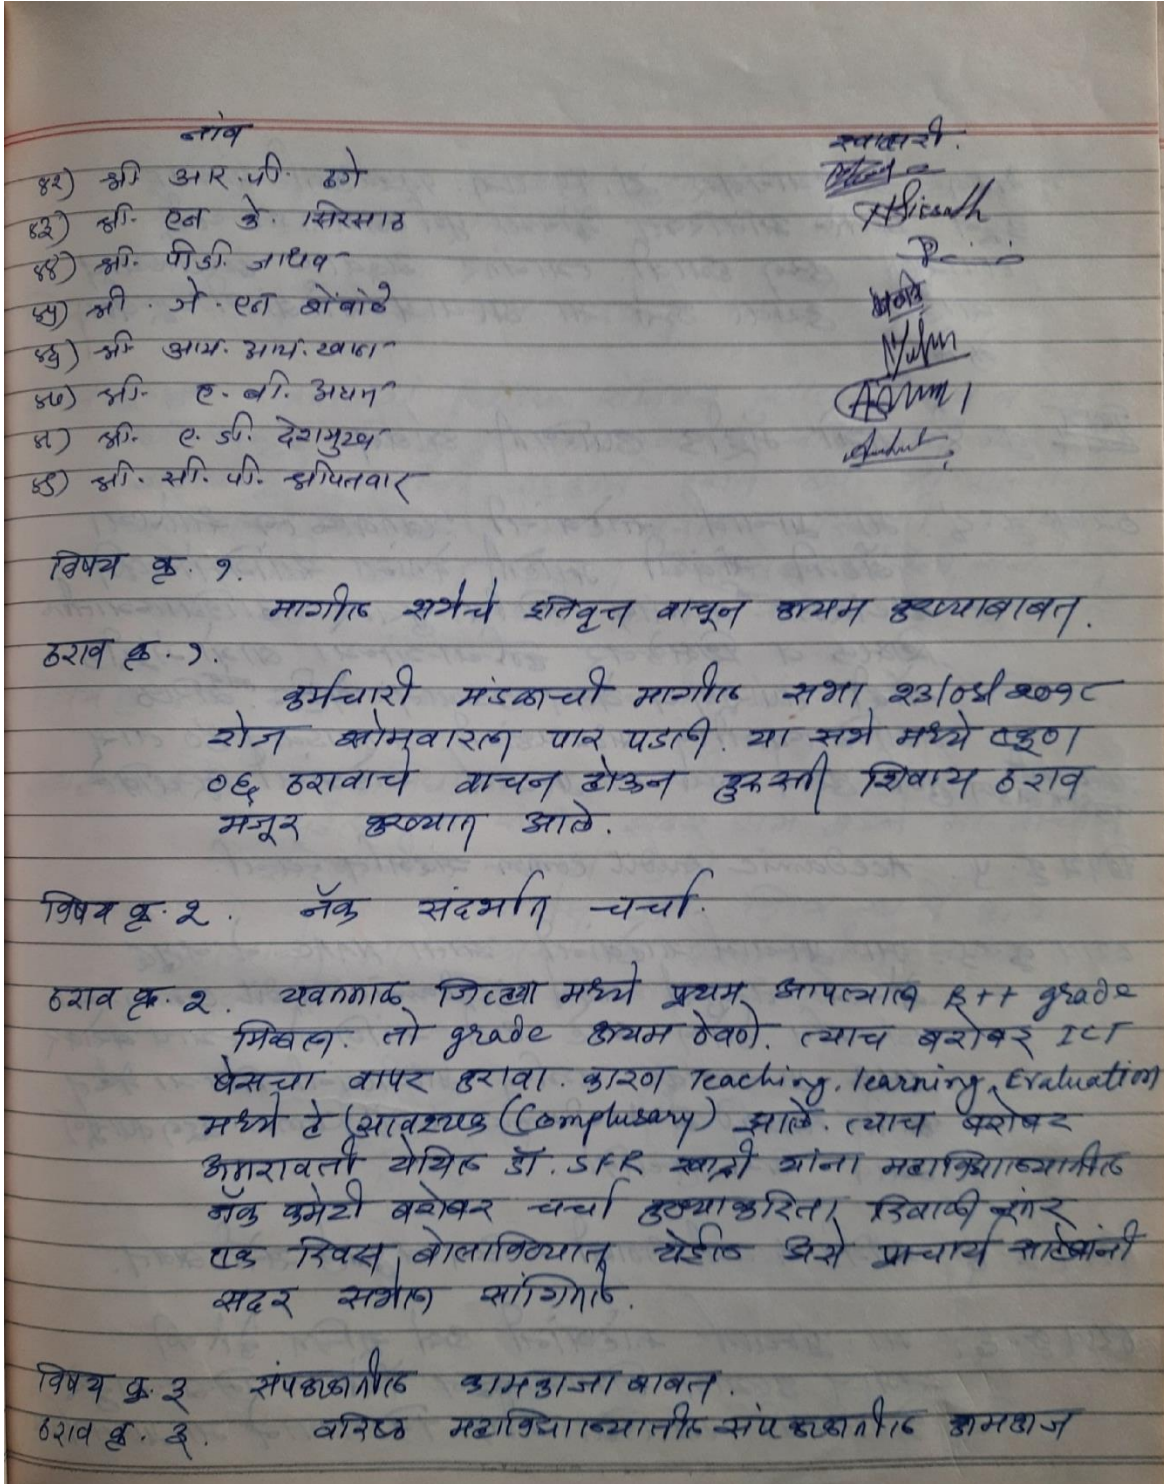 नांव स्वाक्षरी.
४२) श्री आर. पी. ढगे
४३) श्री. एन के. सिरसाठ
४४) श्री. पी.डी. जाधव
४५) श्री. जे. एन बोंबोडे
४६) श्री आय. आय. खान
४७) श्री. ए. बी. अघम
४८) श्री. ए. डी. देशमुख
४९) श्री. सी. पी. श्रीपतवार
विषय क्र. १.
मागील सभेचे इतिवृत्त वाचून कायम करण्याबाबत.
ठराव क्र. १.
कर्मचारी मंडळाची मागील सभा २३/०४/२०१८
रोज सोमवारला पार पडली. या सभे मध्ये एकूण
०६ ठरावाचे वाचन होऊन दुरुस्ती शिवाय ठराव
मंजूर करण्यात आले.
विषय क्र. २. नॅक संदर्भात चर्चा.
ठराव क्र. २. यवतमाळ जिल्ह्या मध्ये प्रथम आपल्याला B++ grade
मिळाला. तो grade कायम ठेवणे. त्याच बरोबर ICT
बेसचा वापर करावा. कारण Teaching, learning, Evaluation
मध्ये हे (आवश्यक (Complusary) झाले. त्याच बरोबर
अमरावती येथिल डॉ. SFR खाद्री यांना महाविद्यालयातील
नॅक कमेटी बरोबर चर्चा करण्याकरिता दिवाळी नंतर
एक दिवस बोलाविण्यात येईल असे प्राचार्य साहेबांनी
सदर सभेला सांगितले.
विषय क्र. ३ संपकाळातील कामकाजा बाबत.
ठराव क्र. ३. वरिष्ठ महाविद्यालयातील संप काळातील कामकाज